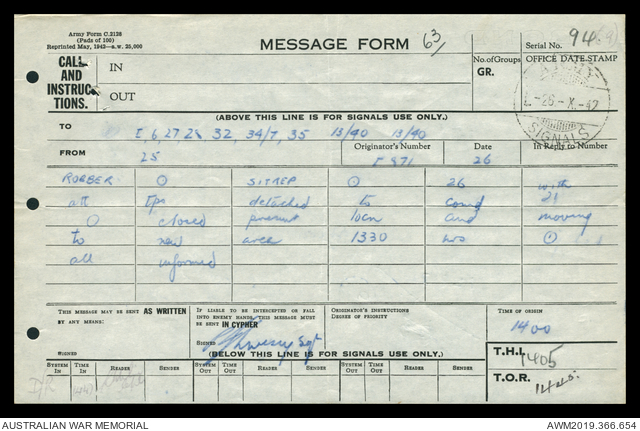 Army Form C.2128
(Pads of 100)
Reprinted May, 1943—s.w. 25,000
MESSAGE FORM 63/
Serial No. 94
CALL AND INSTRUC-TIONS.
IN
OUT
No. of Groups
GR.
OFFICE DATE STAMP
26-X-42
SIGNALS
(ABOVE THIS LINE IS FOR SIGNALS USE ONLY.)
TO 6, 27 28 32 34/7, 35 13/40 13/40
FROM 25
Originator's Number 871
Date 26
In Reply to Number
ROBBER O SITREP O 26 with
att tps detached to comd 21
O closed present locn and moving
to new area 1330 hrs O
all informed
THIS MESSAGE MAY BE SENT AS WRITTEN
BY ANY MEANS:
SIGNED
IF LIABLE TO BE INTERCEPTED OR FALL
INTO ENEMY HANDS, THIS MESSAGE MUST
BE SENT IN CYPHER
SIGNED Sgt
ORIGINATOR'S INSTRUCTIONS
DEGREE OF PRIORITY
TIME OF ORIGIN
1400
(BELOW THIS LINE IS FOR SIGNALS USE ONLY.)
T.H.I. 1405
T.O.R. 1445
SYSTEM IN TIME IN READER SENDER SYSTEM OUT TIME OUT READER SENDER SYSTEM OUT TIME OUT READER SENDER
AUSTRALIAN WAR MEMORIAL
AWM2019.366.654